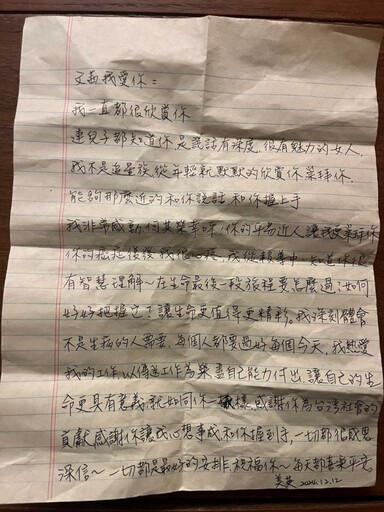 文茜我愛你：
我一直都很欣賞你
連兒子都知道你是說話有深度，很有魅力的女人，
我不是追星族從年輕就默默的欣賞你崇拜你.
能夠那麼近的和你說話 和你握上手
我非常感動何其榮幸啊，你的平易近人讓我更崇拜你
你的 後後我很 , 我從 事中，知道你很
有智慧理解～在生命最後一段旅程要怎麼過？如何
好好把握它？讓生命更值得更精彩。我深刻體會
不是生病的人需要，每個人都要過好每個今天，我熱愛
我的工作以傳遞工作為樂盡自己能力付出，讓自己的生
命更具有意義就如何你一樣感謝你為台灣社會的
貢獻感謝你讓我心想事成和你握到手，一切都很感恩
深信～一切都是最好的安排.祝福你～每天都喜樂平安
美英 2024.12.12